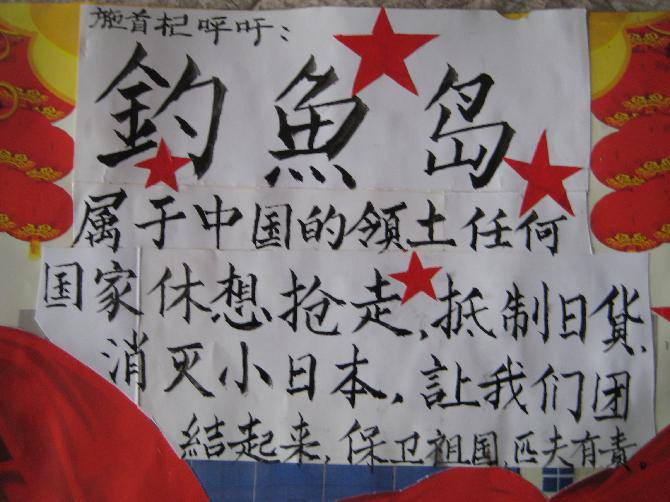 施首杞呼吁：
釣魚岛
属于中国的領土任何
国家休想抢走，抵制日貨，
消灭小日本，讓我们团
結起来，保卫祖国，匹夫有责。